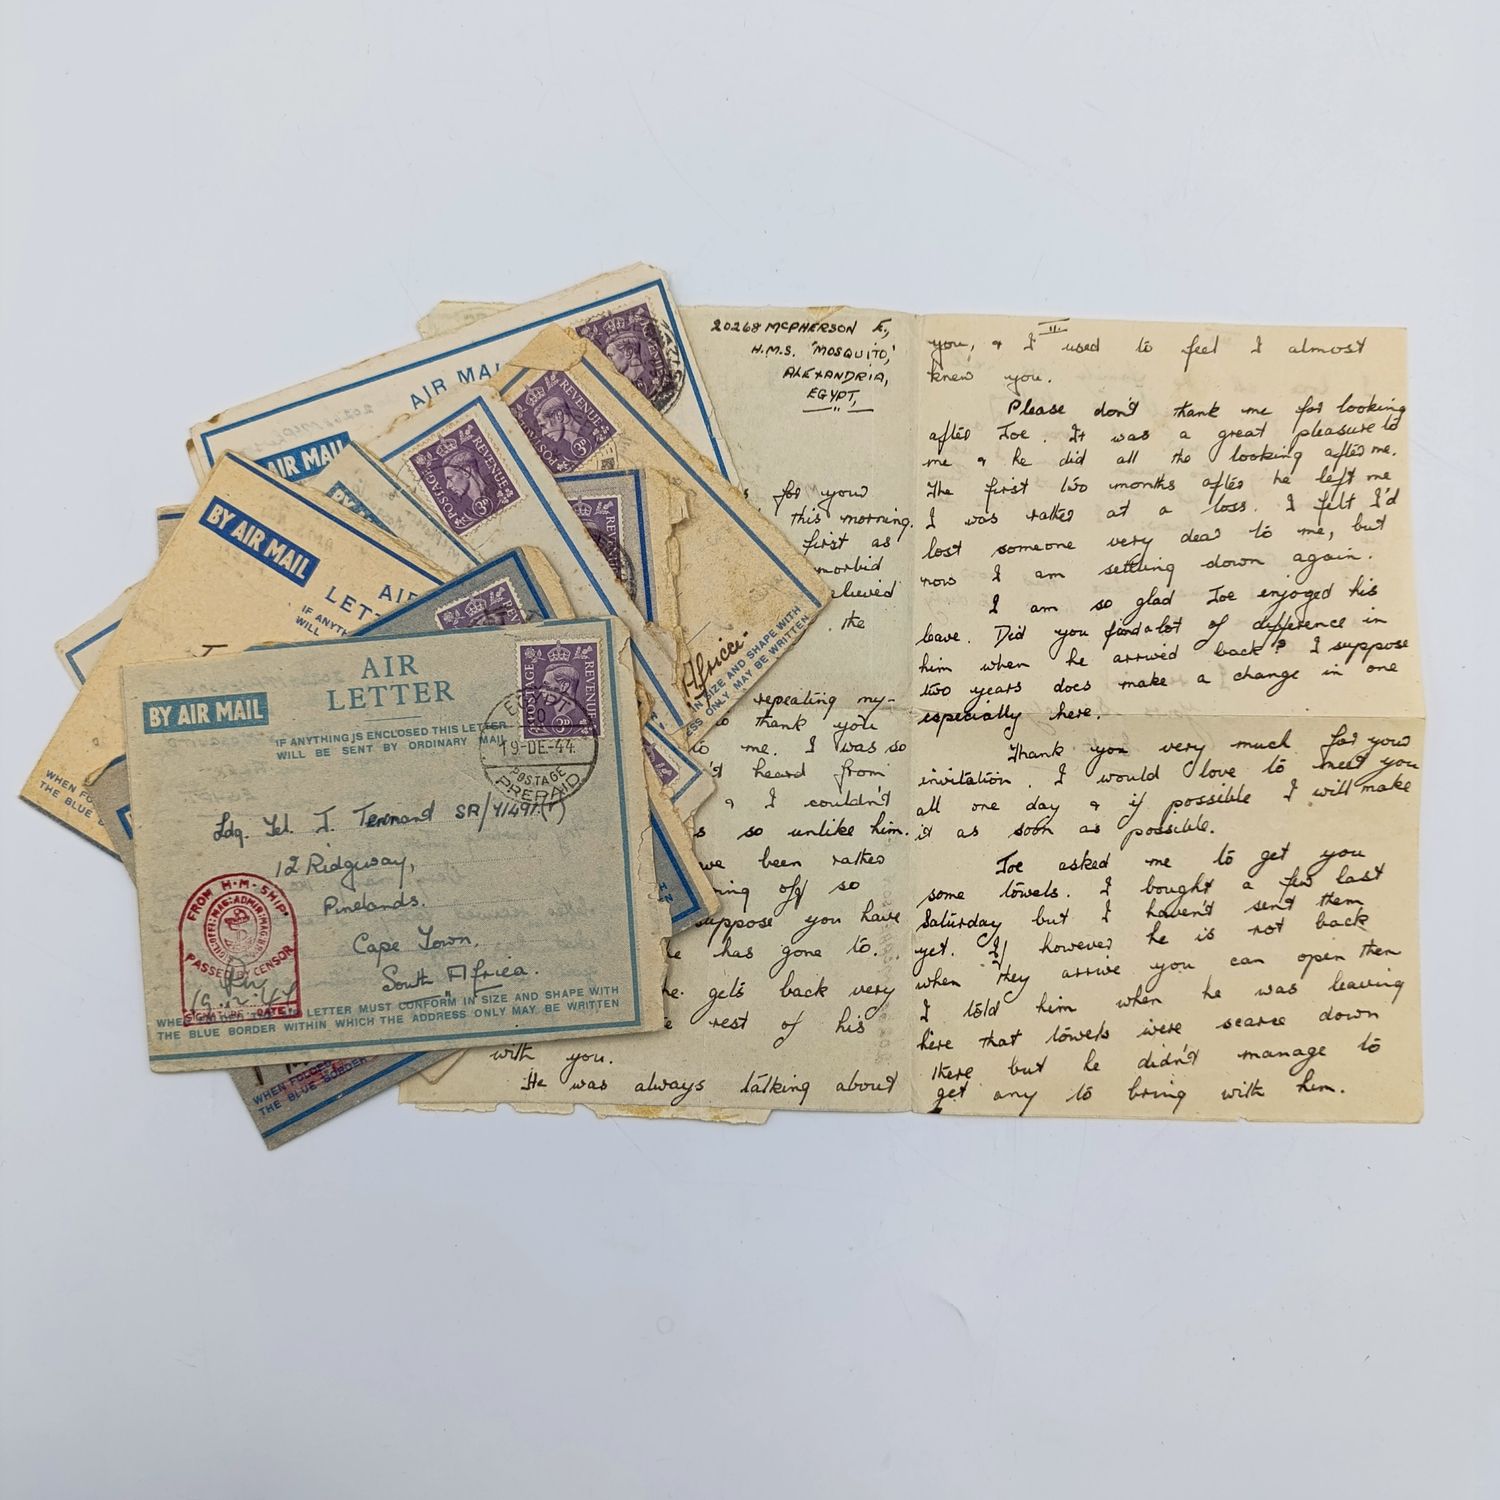 AIR MAIL
AIR MAIL
BY AIR MAIL
AIR
LETT
IF ANYTH
WILL
POSTAGE REVENUE
3D
POSTAGE REVENUE
3D
Africa.
IN SIZE AND SHAPE WITH
ESS ONLY MAY BE WRITTEN
WHEN FO
THE BLUE
AIR
LETTER
BY AIR MAIL
IF ANYTHING IS ENCLOSED THIS LETTER
WILL BE SENT BY ORDINARY MAIL
POSTAGE REVENUE
3D
EGYPT
19-DE-44
POSTAGE
PREPAID
Ldg. Tel. J. Tennand SR/V/491(T)
12 Ridgway,
Pinelands.
Cape Town.
South Africa.
FROM H.M. SHIP
PASSED BY CENSOR
SIGNATURE DATE
WHE LETTER MUST CONFORM IN SIZE AND SHAPE WITH
THE BLUE BORDER WITHIN WHICH THE ADDRESS ONLY MAY BE WRITTEN
WHEN FOLDED
THE BLUE BORDER
20268 MCPHERSON E.,
H.M.S. 'MOSQUITO,'
ALEXANDRIA,
EGYPT,
s for your
this morning.
first as
morbid
elieved
the
repeating my-
thank you
to me. I was so
't heard from
& I couldn't
s so unlike him.
ve been rather
ing off so
uppose you have
he has gone to.
he gets back very
e rest of his
with you.
He was always talking about
III.
you, & I used to feel I almost
knew you.
Please don't thank me for looking
after Joe. It was a great pleasure to
me & he did all the looking after me.
The first two months after he left me
I was rather at a loss. I felt I'd
lost someone very dear to me, but
now I am settling down again.
I am so glad Joe enjoyed his
leave. Did you find a lot of difference in
him when he arrived back? I suppose
two years does make a change in one
especially here.
Thank you very much for your
invitation. I would love to meet you
all one day & if possible I will make
it as soon as possible.
Joe asked me to get you
some towels. I bought a few last
Saturday but I haven't sent them
yet. If however he is not back
when they arrive you can open them
I told him when he was leaving
here that towels were scarce down
there but he didn't manage to
get any to bring with him.